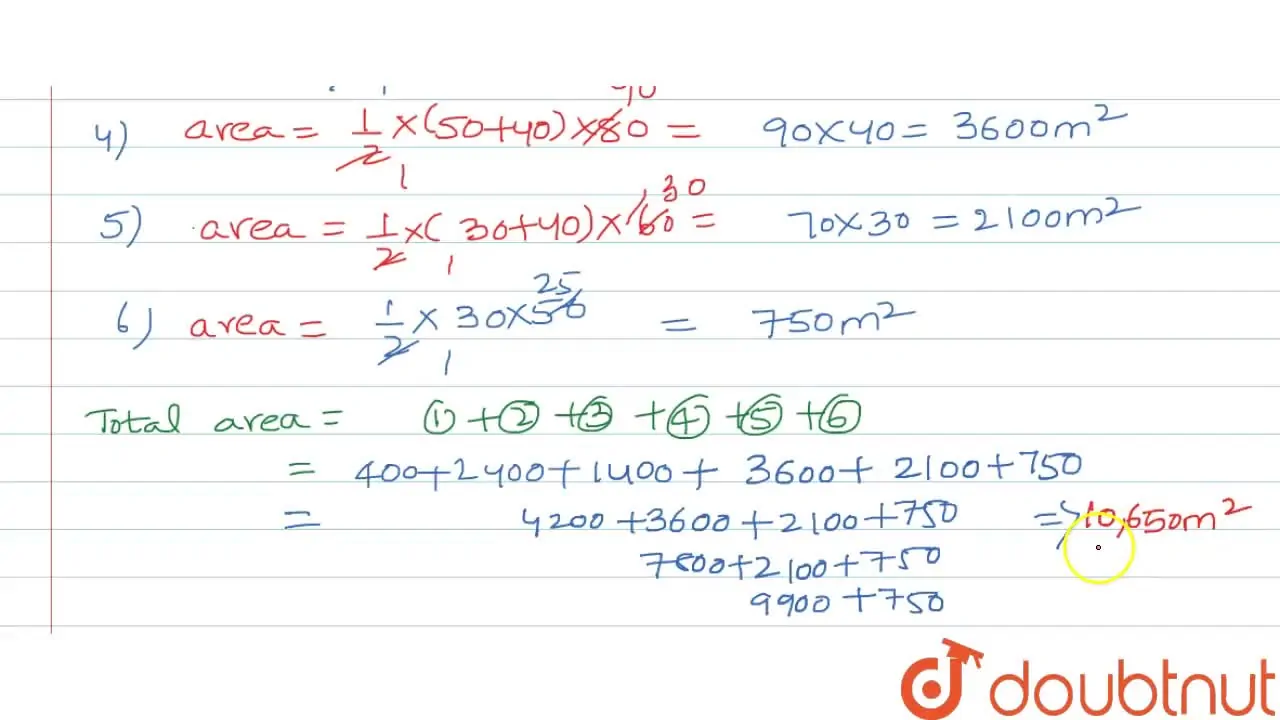 40
4) area = 1/2 × (50+40) × 80 = 90×40 = 3600m²
1
30
5) area = 1/2 ×( 30+40) × 60 = 70×30 = 2100m²
1
25
6) area = 1/2 × 30×50 = 750m²
1
Total area = ① + ② + ③ + ④ + ⑤ + ⑥
= 400+2400+1400+ 3600+ 2100+750
= 4200+3600+2100+750 => 10,650m²
7800+2100+750
9900+750
doubtnut